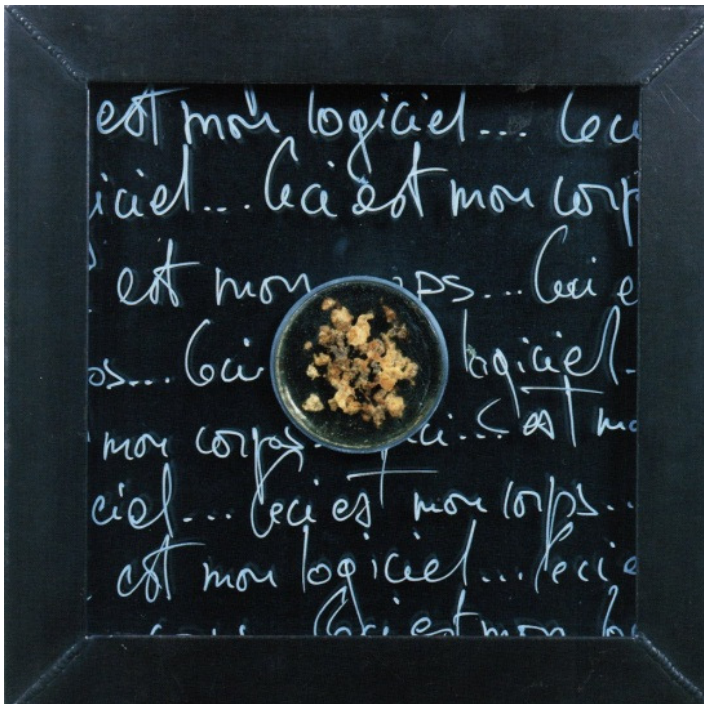 est mon logiciel... Ceci
iciel... Ceci est mon corp
est mon ps... Ceci e
os... Ceci logiciel.
mon corps. ci... est mo
ciel... Ceci est mon corps...
est mon logiciel... Ceci e
Ceci est mon